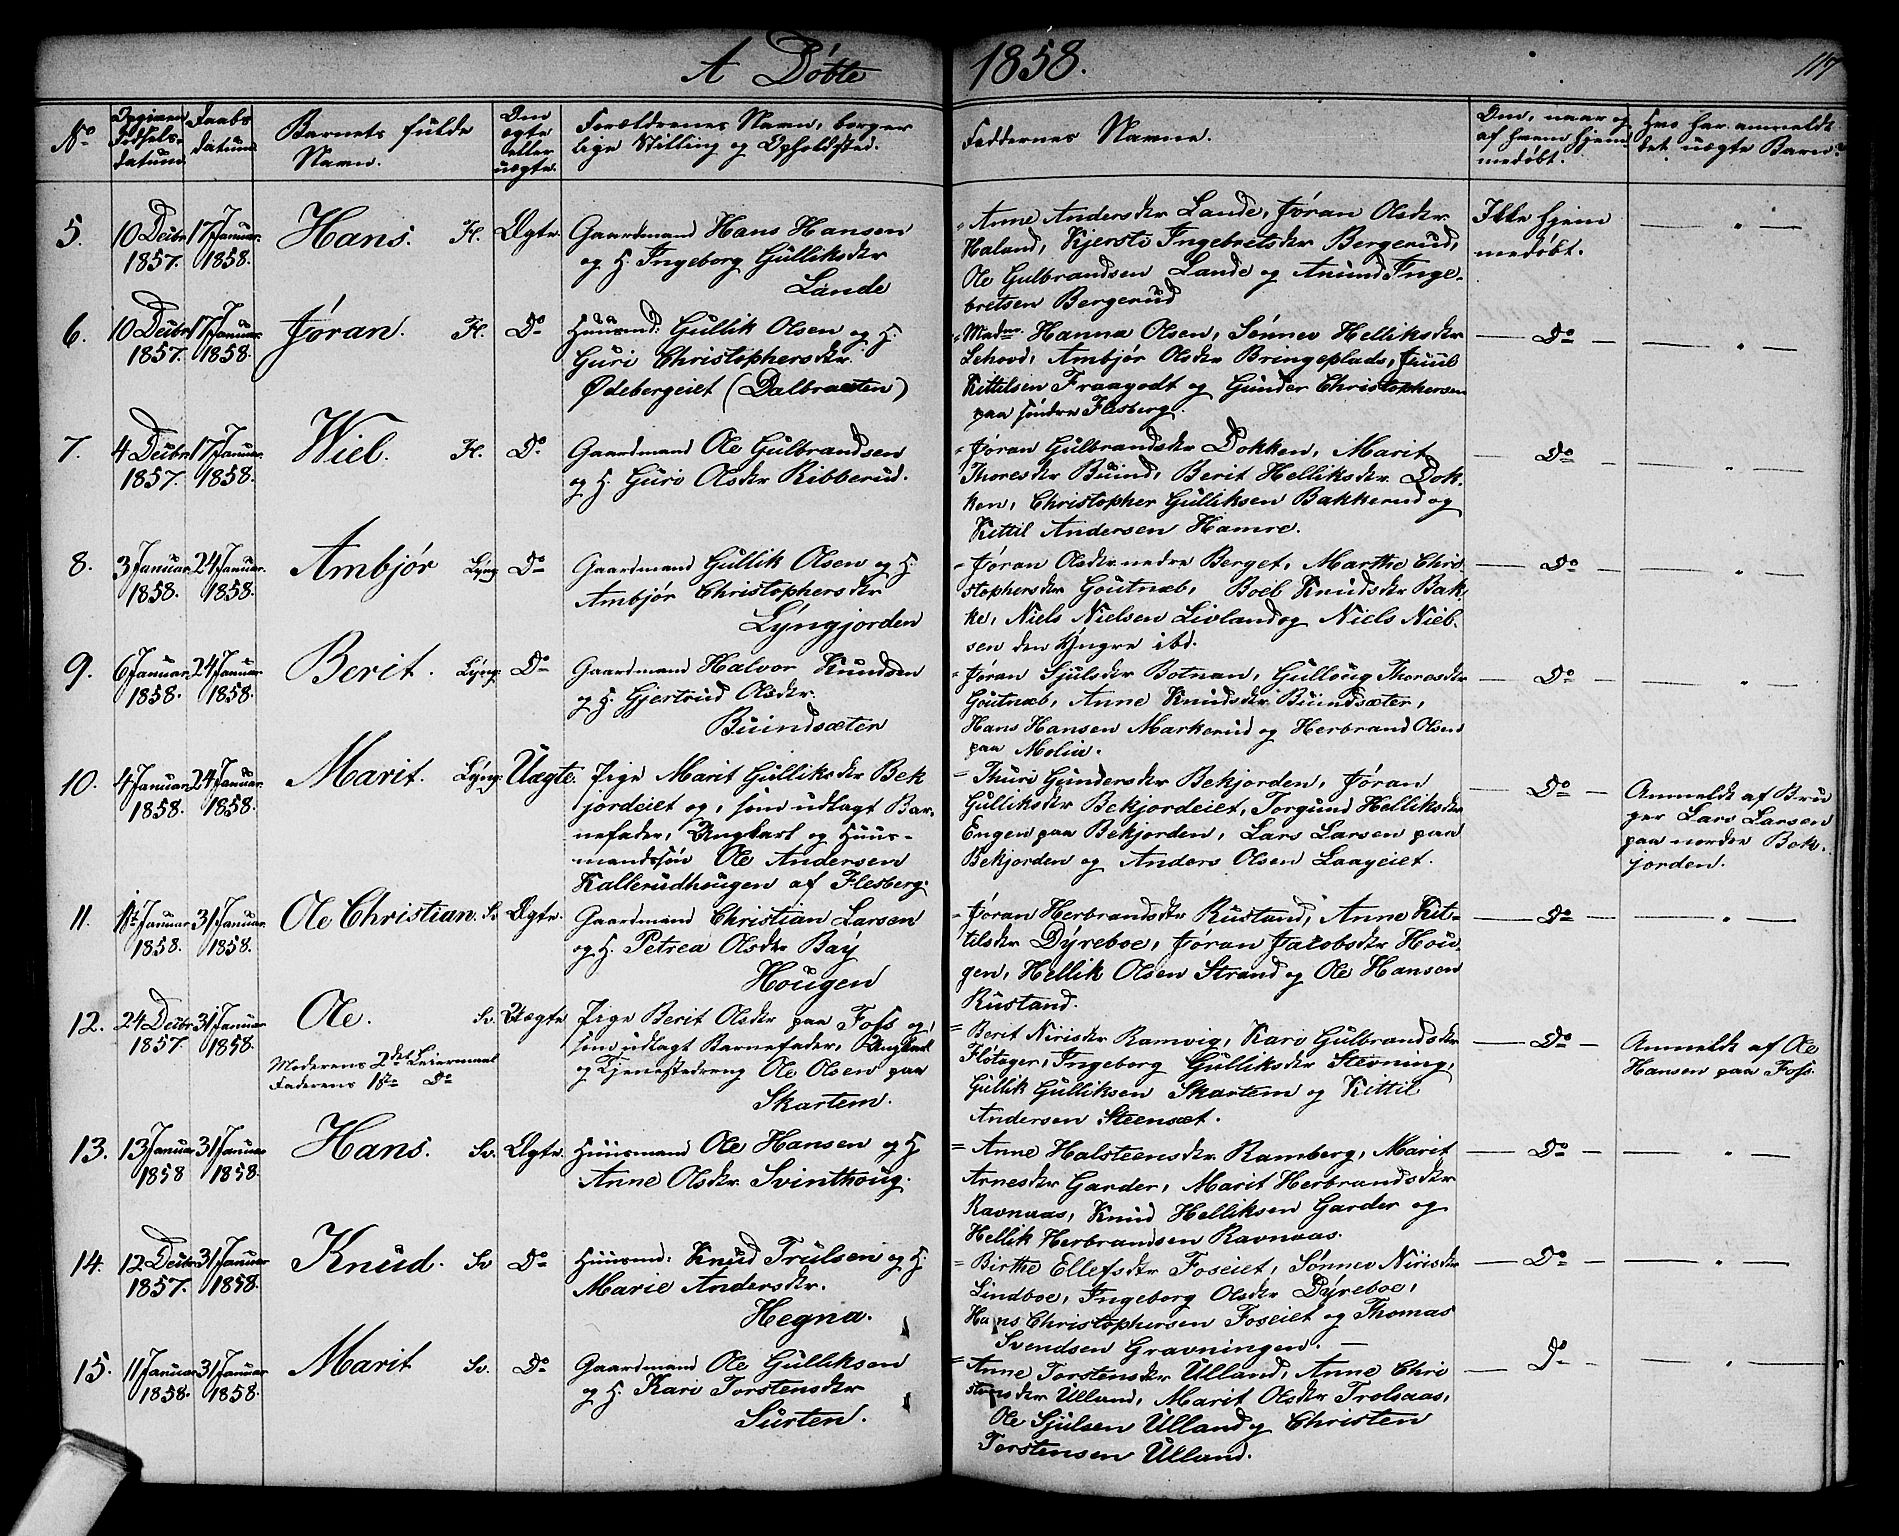 A Døbte 1858. 117
No
Opgiven Fødsels-datum.
Daabs datum.
Barnets fulde Navn.
Om ægte eller uægte.
Forældrenes Navn, borgerlige Stilling og Opholdsted.
Faddernes Navne.
Om, naar og af hvem hjemmedøbt.
Hvo har anmeldt det uægte Barn?
5. 10 Decbr 1857. 17 Januar 1858. Hans. H. Ægte.
Gaardmand Hans Hansen
og H. Ingeborg Gulliksdtr
Lande
Anne Andersdtr Lande, Jøran Olsdtr
Haland, Kjersti Ingebretsdtr Bergerud,
Ole Gulbrandsen Lande og Anund Inge-
bretsen Bergerud
Ikke hjem
medøbt.
6. 10 Decbr 1857. 17 Januar 1858. Jøran. H. Do
Huusmd: Gullik Olsen og H.
Guri Christophersdtr
Ødebergeiet (Dalbraaten)
Madm Hanna Olsen, Sønnev Helliksdtr
Lehovd, Ambjør Olsdtr Bringeplads, Juul
Kittilsen Fraagodt og Gunder Christophersen
paa søndre Flesberg.
Do
7. 4 Decbr 1857. 17 Januar 1858. Wiel. H. Do
Gaardmand Ole Gulbrandsen
og H. Guro Olsdtr Ribberud.
Jøran Gulbrandsdtr Dokken, Marit
Thoresdtr Buind, Berit Helliksdtr Dok-
ken, Christopher Gulliksen Bakkerud og
Kittil Andersen Hamre.
Do
8. 3 Januar 1858. 24 Januar 1858. Ambjør Lyng Do
Gaardmand Gullik Olsen og H.
Ambjør Christophersdtr
Lyngjorden
Jøran Olsdtr nedre Berget, Marthe Chri-
stophersdtr Goutnæb, Boel Knudsdtr Bak-
ke, Niels Nielsen Livland og Niels Niel-
sen den Yngre ibd.
Do
9. 6 Januar 1858. 24 Januar 1858. Berit. Lyng. Do
Gaardmand Halvor Knudsen
og H. Gjertrud Olsdtr
Buindsæter
Jøran Sjulsdtr Botnan, Gulloug Thoresdtr
Goutnæb, Anne Knudsdtr Buindsæter,
Hans Hansen Markerud og Herbrand Olsen
paa Molia.
Do
10. 4 Januar 1858. 24 Januar 1858. Marit. Lyng. Uægte.
Pige Marit Gulliksdtr Bek
jordeiet og, som udlagt Bar-
nefader, Ungkarl og Huus-
mandssøn Ole Andersen
Kallerudhougen af Flesberg.
Thuri Gundersdtr Bekjorden, Jøran
Gulliksdtr Bekjordeiet, Torgund Helliksdtr
Engen paa Bekjorden, Lars Larsen paa
Bekjorden og Anders Olsen Laageiet.
Do
Anmeldt af Bru
ger Lars Larsen
paa nordre Bek-
jorden.
11. 1ste Januar 1858. 31 Januar 1858. Ole Christian. Sv Ægte.
Gaardmand Christian Larsen
og H. Petrea Olsdtr Bay
Hougen
Jøran Herbrandsdtr Rustand, Anne Kit-
tilsdtr Dyreboe, Jøran Jakobsdtr Hou-
gen, Hellik Olsen Strand og Ole Hansen
Rustand.
Do
12. 24 Decbr 1857. 31 Januar 1858. Ole. Sv. Uægte
Moderens 2det Leiermaal
Faderens 1ste Do
Pige Berit Olsdtr paa Foss og,
som udlagt Barnefader, Ungkarl
og Tjenestedreng Ole Olsen paa
Skartem.
Berit Nirisdtr Ramvig, Kari Gulbrandsdtr
Flotager, Ingeborg Gulliksdtr Stevning,
Gullik Gulliksen Skartem og Kittil
Andersen Steenset.
Do
Anmeldt af Ole
Hansen paa Foss.
13. 13 Januar 1858 31 Januar 1858. Hans. Sv. Ægte.
Huusmand Ole Hansen og H
Anne Olsdtr Svinthoug.
Anne Halsteensdtr Ramberg, Marit
Arnesdtr Garder, Marit Herbrandsdtr
Ravnaas, Knud Helliksen Garder og
Hellik Herbrandsen Ravnaas.
Do
14. 12 Decbr 1857. 31 Januar 1858. Knud. Sv Do
Huusmd: Knud Trulsen og H.
Marie Andersdtr.
Hegna.
Birthe Ellefsdtr Foseiet, Sønnev Nirisdtr
Lindboe, Ingeborg Olsdtr Dyreboe,
Hans Christophersen Foseiet og Thomas
Svendsen Gravningen.
Do
15. 11 Januar 1858. 31 Januar 1858. Marit Sv. Do
Gaardmand Ole Gulliksen
og H. Kari Torstensdtr
Surten.
Anne Torstensdtr Ulland, Anne Chri
stensdtr Ulland, Marit Olsdtr Trolsaas,
Ole Sjulsen Ulland og Christen
Torstensen Ulland.
Do